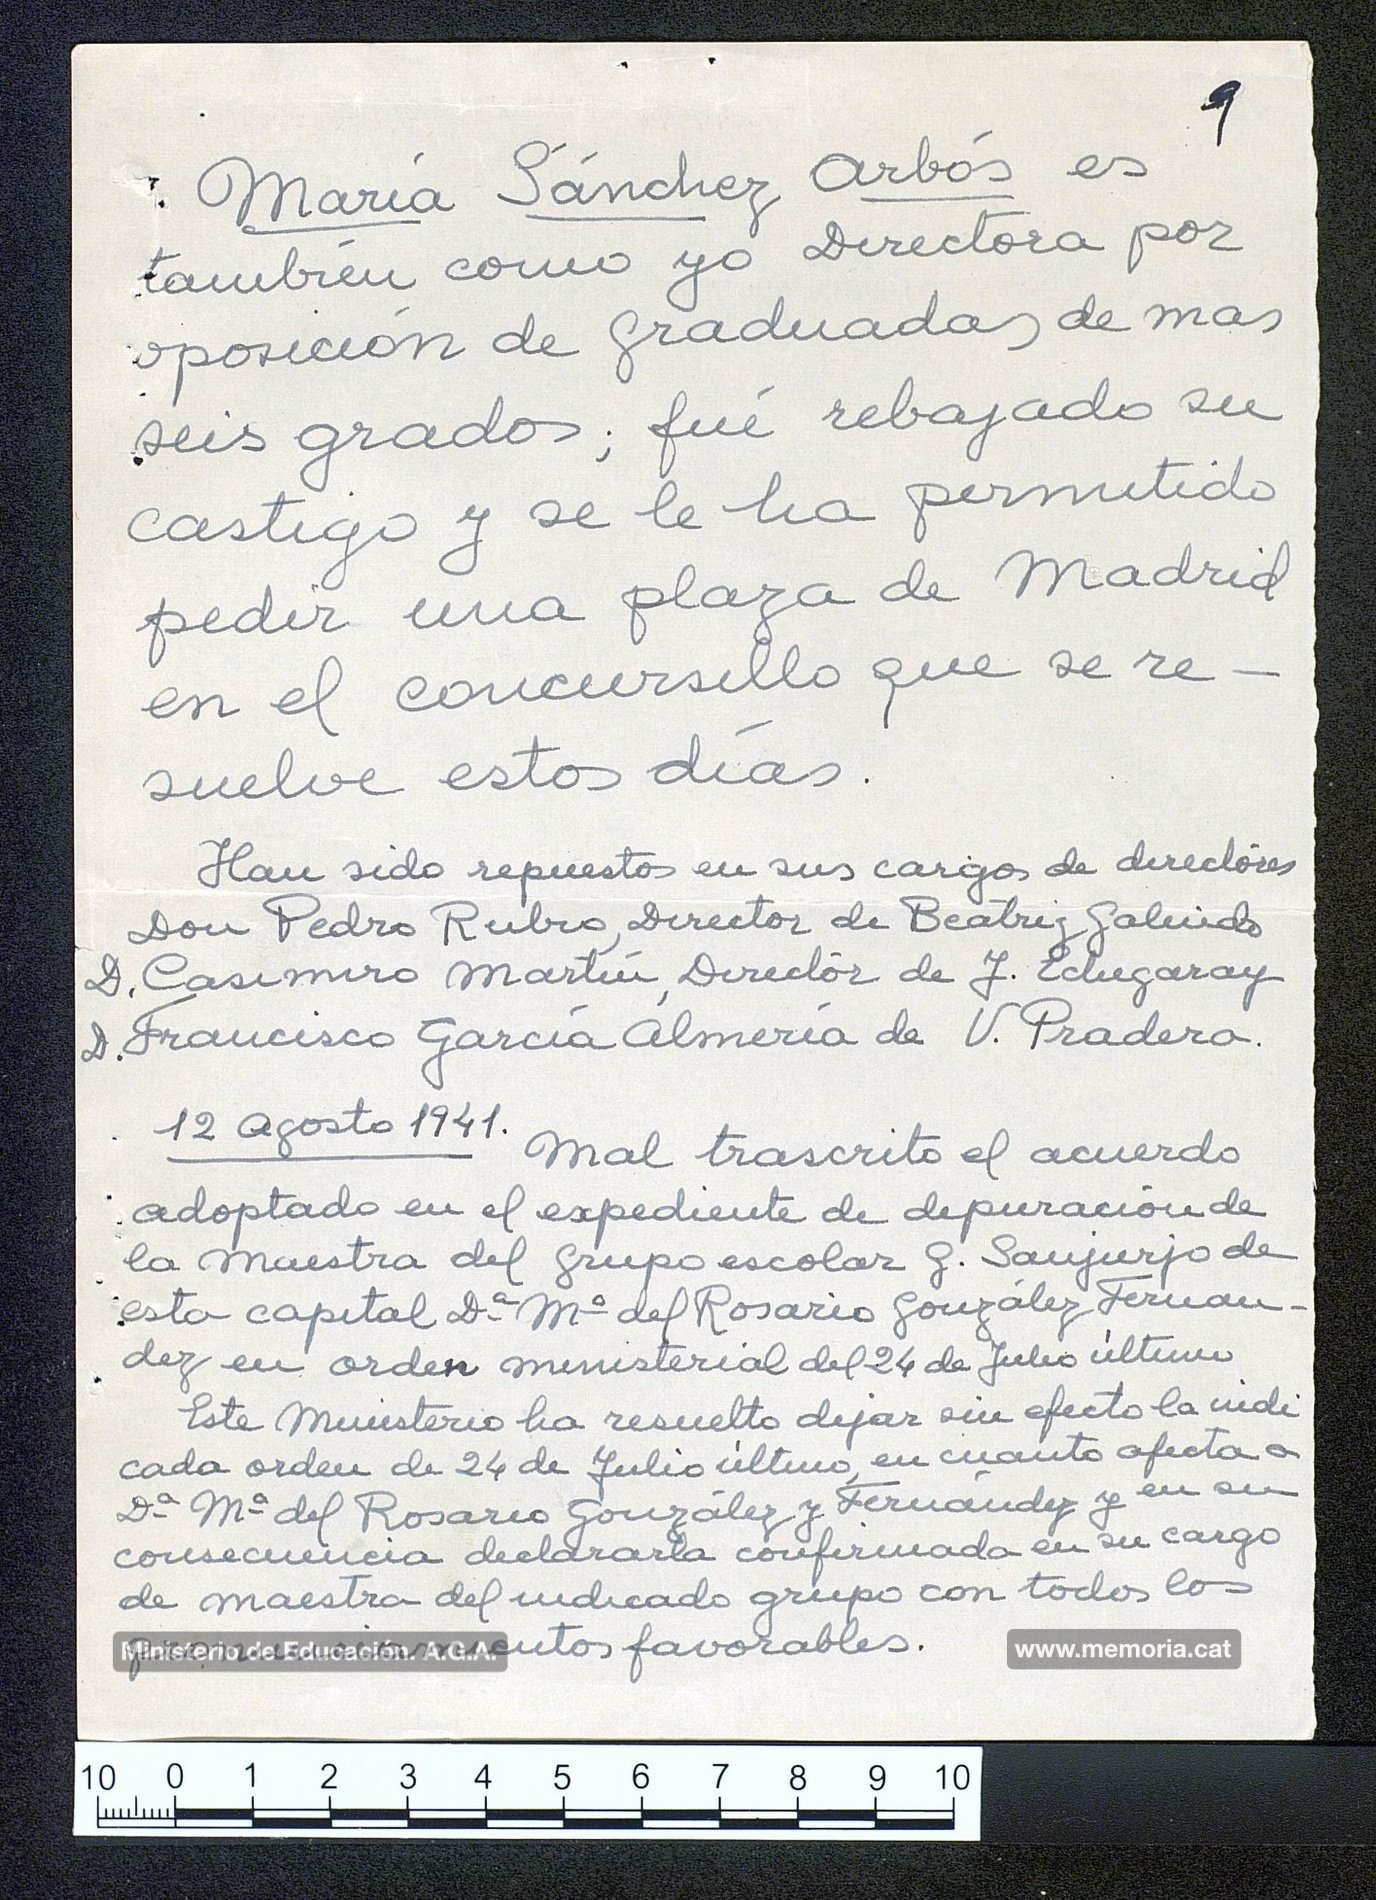 9
María Sánchez Arbós es
también como yo Directora por
oposición de graduadas de mas
seis grados; fué rebajado su
castigo y se le ha permitido
pedir una plaza de Madrid
en el concursillo que se re-
suelve estos días.
Han sido repuestos en sus cargos de directores
Don Pedro Rubio, Director de Beatriz Galindo
D. Casimiro Martín, Director de J. Echegaray
D. Francisco García Almería de V. Pradera.
12 agosto 1941. Mal trascrito el acuerdo
adoptado en el expediente de depuración de
la maestra del grupo escolar G. Sanjurjo de
esta capital Dª Mª del Rosario González Fernan-
dez en orden ministerial del 24 de Julio último
Este Ministerio ha resuelto dejar sin efecto la indi
cada orden de 24 de Julio último, en cuanto afecta a
Dª Mª del Rosario González y Fernández y en su
consecuencia declararla confirmada en su cargo
de maestra del indicado grupo con todos los
pronunciamientos favorables.
Ministerio de Educación. A.G.A.
www.memoria.cat
10 0 1 2 3 4 5 6 7 8 9 10